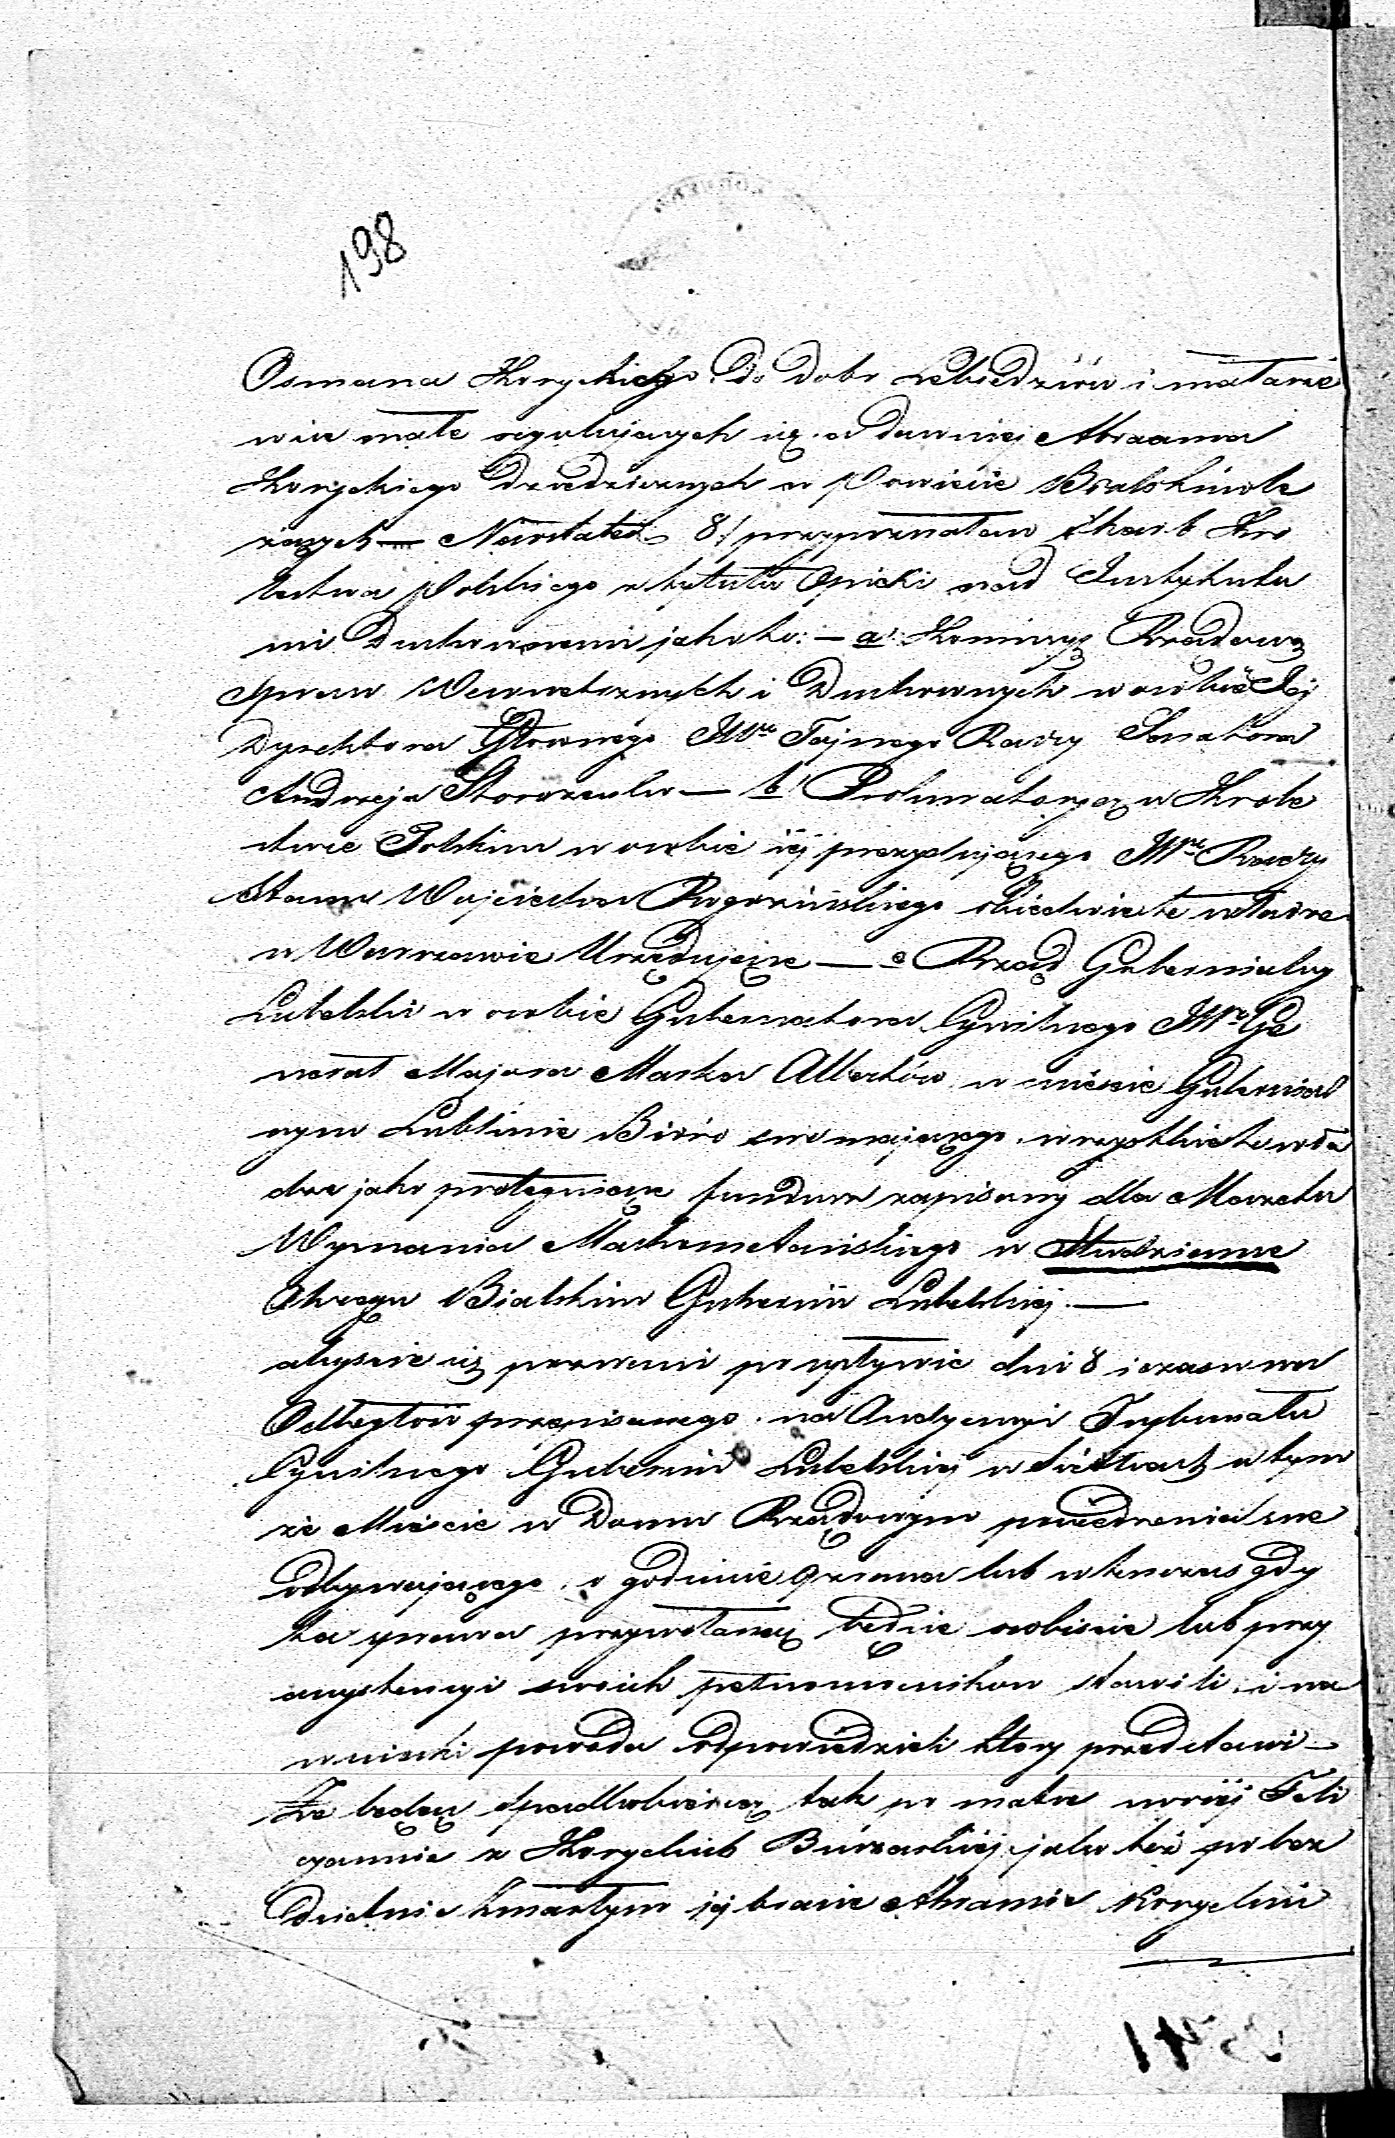 198
Osmana Koryckiego do dobr Lebiedziów i małasze
wicze małe regulujących się a dawniej Abraama
Koryckiego dziedzicznych w Powiecie Bialskim le
żących — Nareszcie 8/ przypozwałem Skarb Kró
lestwa Polskiego z tytułu Opieki nad Instytuta
mi Duchownemi jakoto: — a/ Kommissyą Rządową
Spraw Wewnętrznych i Duchownych w osobie Jej
Dyrektora Głównego JWo Tajnego Radzy Senatora
Andrzeja Storożenko — b/ Prokuratoryą w Króle
stwie Polskim w osobie iej prezydującego JWo Radzy
Stanu Wojciecha Rogozińskiego obiedwie te władze
w Warszawie Urzędujące — c Rząd Gubernialny
Lubelski w osobie Gubernatora Cywilnego JWo Ge
nerał Majora Marka Albertów w mieście Gubernial
nym Lublinie Biuro swe mającego, wszystkie te wła
dze jako protegujące fundusz zapisany dla Meczetu
Wyznania Machometańskiego w Studziance
Okręgu Bialskim Gubernii Lubelskiej. —
abyście się pozwani po upływie dni 8 i czasu na
Odległość przepisanego, na Audyencyi Trybunału
Cywilnego Gubernii Lubelskiej w Siedlcach w tym
że Mieście w Domu Rządowym posiedzenia swe
odbywającego, o godzinie 9 z rana lub wówczas gdy
ta sprawa przywołaną będzie osobiście lub przy
assystencyi swoich pełnomocników stawili, i na
wnioski powoda odpowiedzieli który przedstawi —
Że będąc Spadkobiercą tak po matce swoiej Feli
cyannie z Koryckich Buczackiej jako też po bez
dzietnie zmarłym jej bracie Abramie Koryckim
41